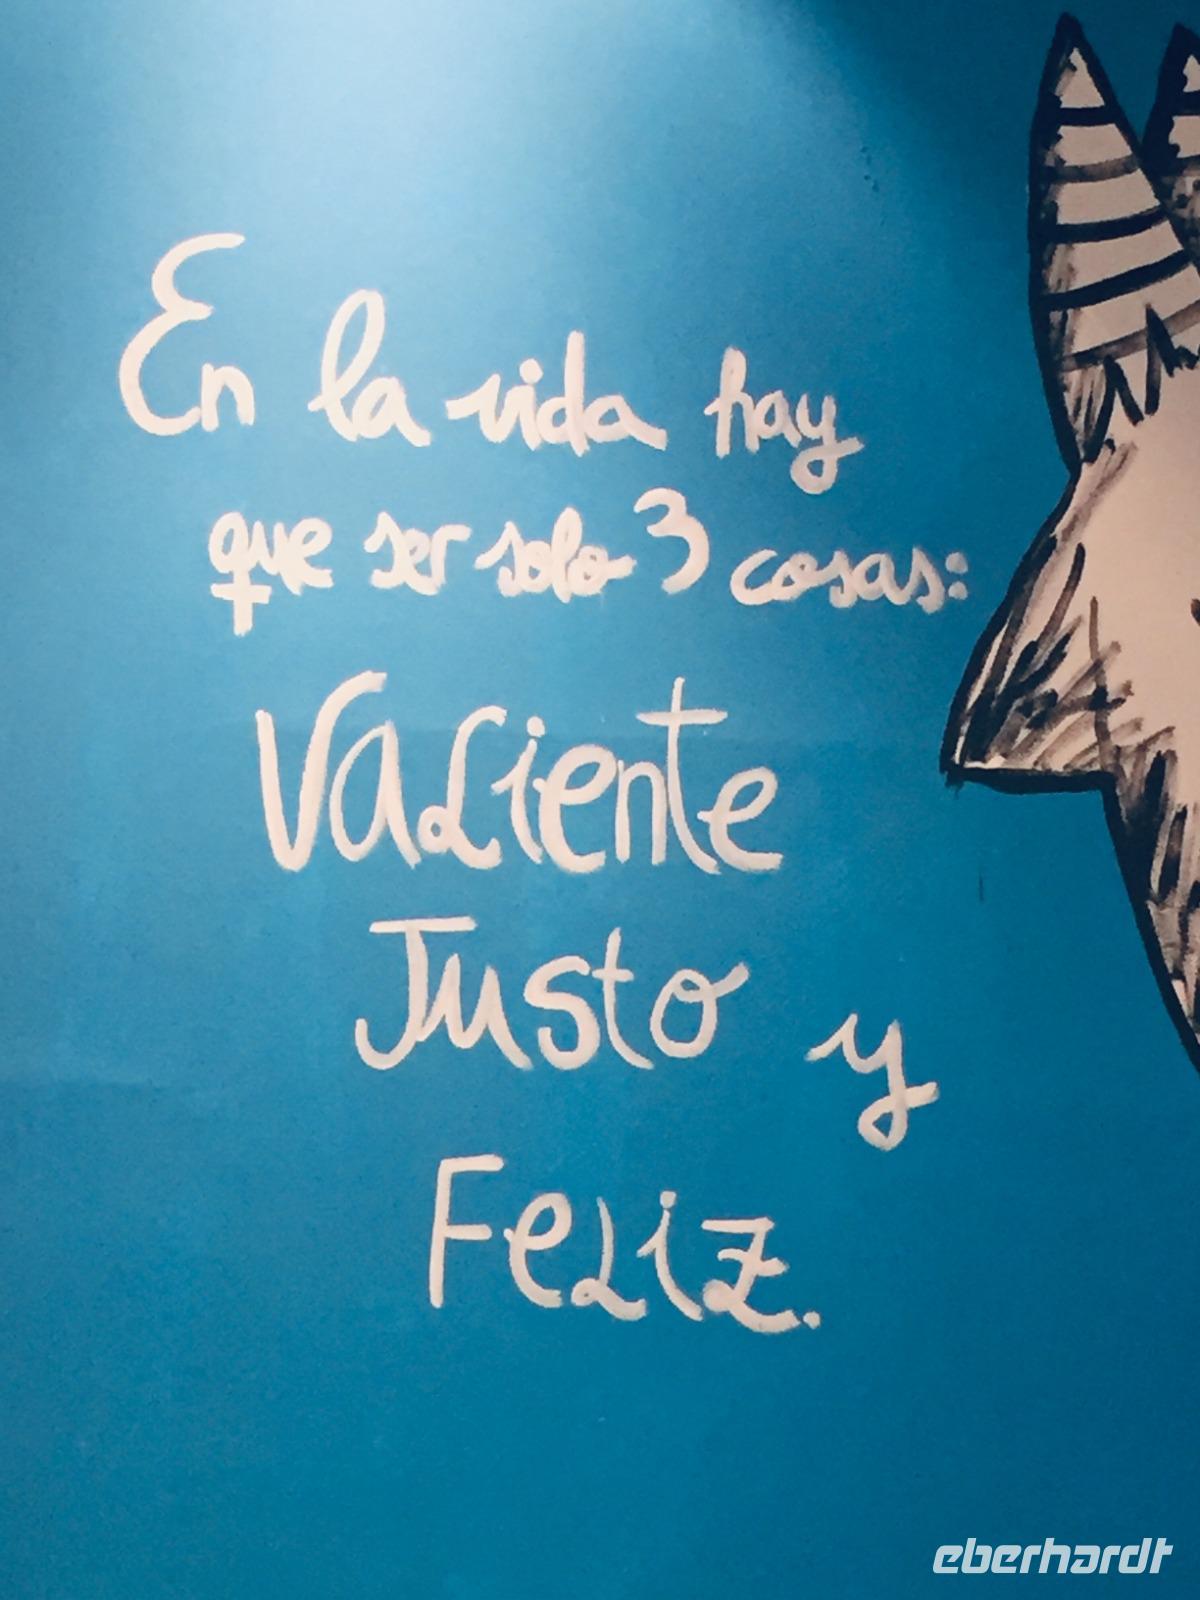 En la vida hay
que ser solo 3 cosas:
Valiente
Justo y
Feliz.
eberhardt